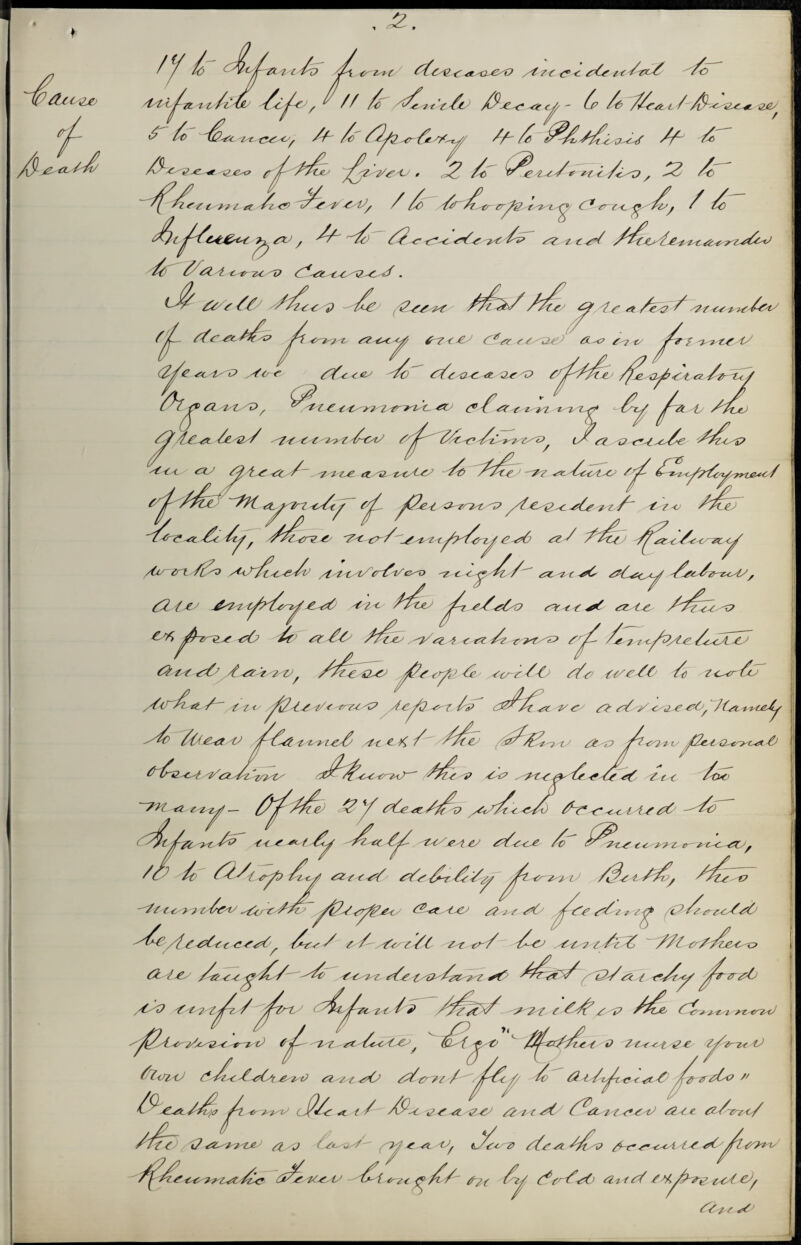 . 2 .
Cause
of
Death
17 to Infants from diseases incidental to
infantile life, 11 to Senile Decay - 6 to Heart Disease,
5 to Cancer, 4 to Apolexy 4 to Phthisis 4 to
Diseases of the Liver. 2 to Peritonitis, 2 to
Rheumatic Fever, 1 to Whooping Cough, 1 to
Influenza, 4 to Accidents and the remainder
to Various Causes.
It will thus be seen that the greatest number
of deaths from any one cause as in former
years we due to diseases of the Respiratory
Organs, Pneumonia claiming by far the
greatest number of Victims, I ascribe this
in a great measure to the nature of Employment
of the Majority of Persons resident in the
locality, those not employed at the Railway
works which involves night and day labour,
are employed in the fields and are thus
exposed to all the variations of tempreture
and rain, these people will do well to note
what in previous reports I have advised, Namely
to Wear flannel next the Skin as from personal
observation I know this is neglected in too
many - Of the 27 deaths which occurred to
Infants nearly half were due to Pneumonia,
10 to Atrophy and debility from Birth, this
number with proper care and feeding should
be reduced, but it will not be until Mothers
are taught to understand that starchy food
is unfit for Infants that milk is the Common
Provision of nature, Ergo "Mothers nurse your
own children and dont fly to artificial foods"
Deaths from Heart Disease and Cancer are about
the same as last year, Two deaths occurred from
Rheumatic Fever brought on by Cold and exposure,
and